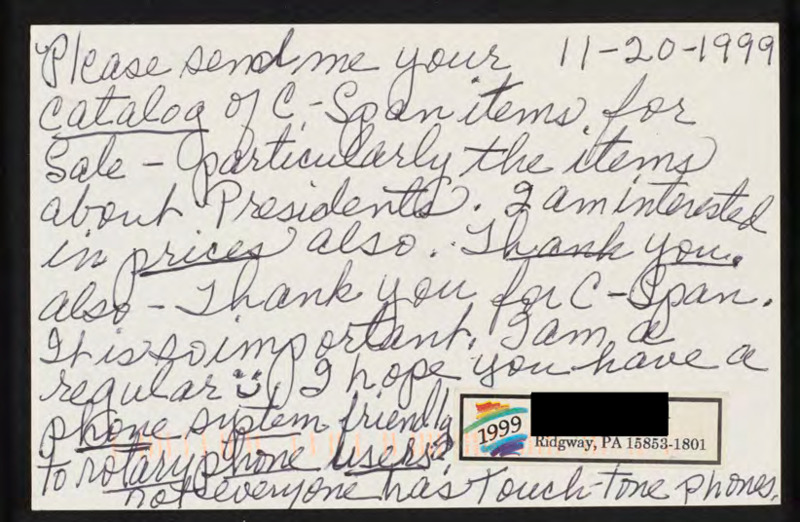 Please send me your 11-20-1999
catalog of C-Span items for
Sale - particularly the items
about Presidents. I am interested
in prices also. Thank you.
also - Thank you for C-Span.
It is so important. I am a
regular ☺. I hope you have a
phone system friendly
to rotary phone users.
not everyone has Touch-tone phones.
1999
Ridgway, PA 15853-1801